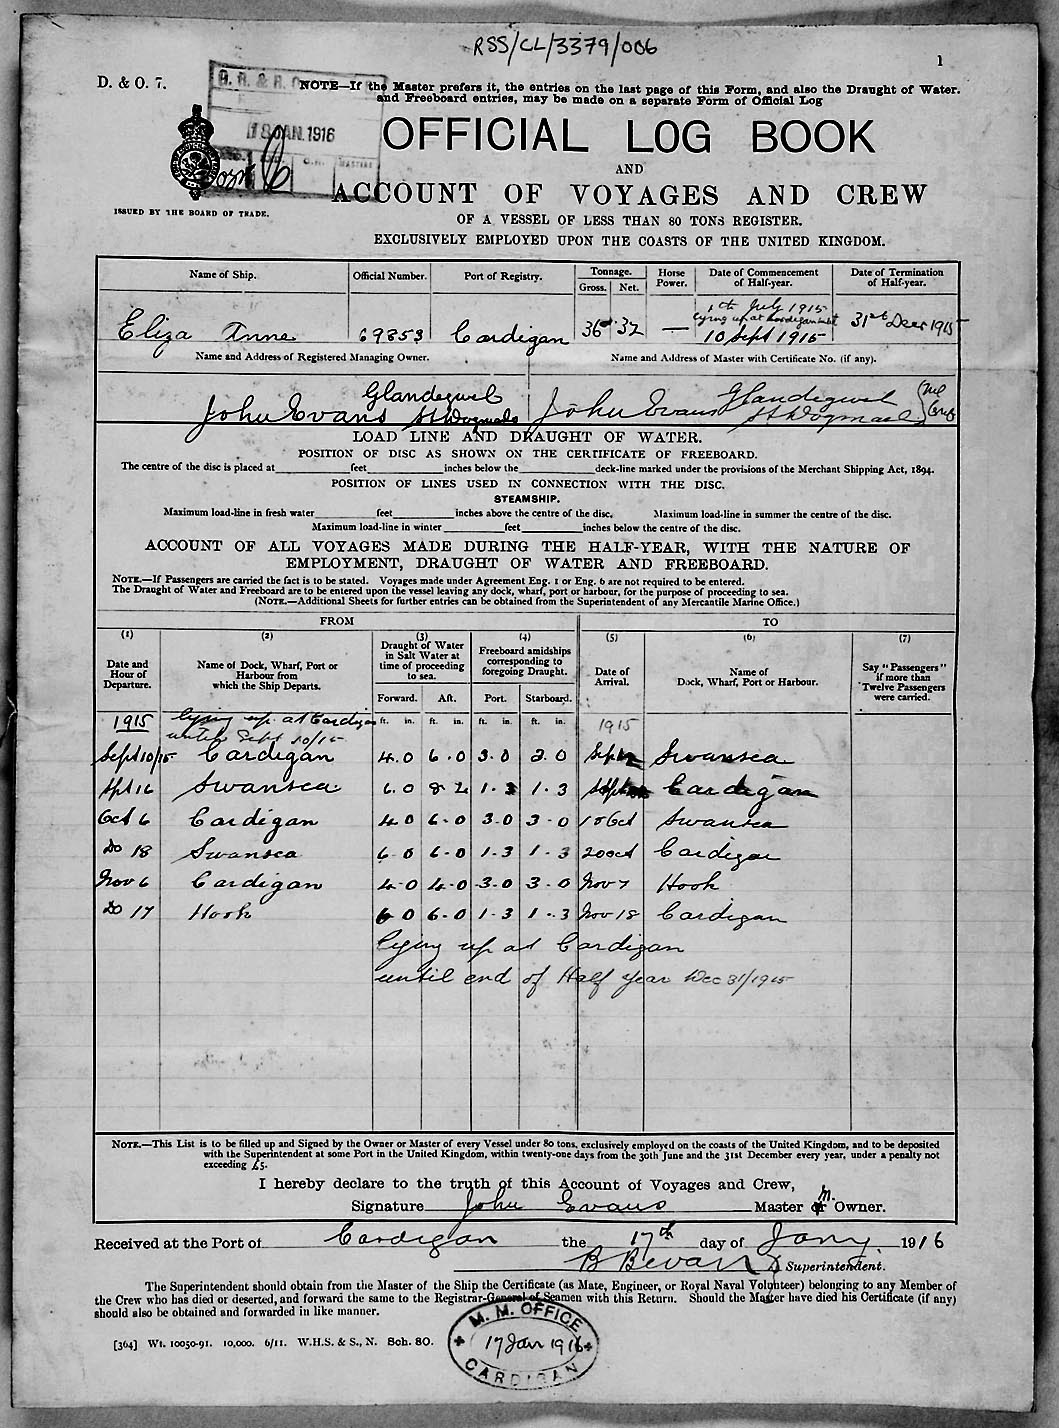 RSS/CL/3379/006
1
D. & O. 7.
NOTE—If the Master prefers it, the entries on the last page of this Form, and also the Draught of Water.
and Freeboard entries, may be made on a separate Form of Official Log
18 JAN. 1916
OFFICIAL LOG BOOK
AND
ACCOUNT OF VOYAGES AND CREW
ISSUED BY THE BOARD OF TRADE.
OF A VESSEL OF LESS THAN 80 TONS REGISTER.
EXCLUSIVELY EMPLOYED UPON THE COASTS OF THE UNITED KINGDOM.
Name of Ship. Official Number. Port of Registry. Tonnage. Gross. Net. Horse Power. Date of Commencement of Half-year. Date of Termination of Half-year.
Eliza Anne 69853 Cardigan 36 32 — 1th July 1915 lying up at Cardigan 10 Sept 1915 31st Decr 1915
Name and Address of Registered Managing Owner. Name and Address of Master with Certificate No. (if any).
John Evans Glandegwel St Dogmaels John Evans Glandegwel St Dogmaels
LOAD LINE AND DRAUGHT OF WATER.
POSITION OF DISC AS SHOWN ON THE CERTIFICATE OF FREEBOARD.
The centre of the disc is placed at feet inches below the deck-line marked under the provisions of the Merchant Shipping Act, 1894.
POSITION OF LINES USED IN CONNECTION WITH THE DISC.
STEAMSHIP.
Maximum load-line in fresh water feet inches above the centre of the disc. Maximum load-line in summer the centre of the disc.
Maximum load-line in winter feet inches below the centre of the disc.
ACCOUNT OF ALL VOYAGES MADE DURING THE HALF-YEAR, WITH THE NATURE OF
EMPLOYMENT, DRAUGHT OF WATER AND FREEBOARD.
NOTE.—If Passengers are carried the fact is to be stated. Voyages made under Agreement Eng. 1 or Eng. 6 are not required to be entered.
The Draught of Water and Freeboard are to be entered upon the vessel leaving any dock, wharf, port or harbour, for the purpose of proceeding to sea.
(NOTE.—Additional Sheets for further entries can be obtained from the Superintendent of any Mercantile Marine Office.)
FROM TO
(1) (2) (3) (4) (5) (6) (7)
Date and Hour of Departure. Name of Dock, Wharf, Port or Harbour from which the Ship Departs. Draught of Water in Salt Water at time of proceeding to sea. Freeboard amidships corresponding to foregoing Draught. Date of Arrival. Name of Dock, Wharf, Port or Harbour. Say "Passengers" if more than Twelve Passengers were carried.
Forward. Aft. Port. Starboard.
1915 lying up at Cardigan ft. in. ft. in. ft. in. ft. in. 1915
until Sept 10/15
Sept 10/15 Cardigan 4.0 6.0 3.0 3.0 Sep 12 Swansea
Spt 16 Swansea 6.0 8 2 1.3 1.3 Cardigan
Oct 6 Cardigan 4.0 6-0 3.0 3-0 10 Oct Swansea
Do 18 Swansea 6-0 6-0 1-3 1-3 20 Oct Cardigan
Nov 6 Cardigan 4-0 4-0 3-0 3-0 Nov 7 Hook
Do 17 Hook 6 0 6-0 1-3 1-3 Nov 18 Cardigan
lying up at Cardigan
until end of Half year Dec 31/1915
NOTE.—This List is to be filled up and Signed by the Owner or Master of every Vessel under 80 tons, exclusively employed on the coasts of the United Kingdom, and to be deposited
with the Superintendent at some Port in the United Kingdom, within twenty-one days from the 30th June and the 31st December every year, under a penalty not
exceeding £5.
I hereby declare to the truth of this Account of Voyages and Crew,
Signature John Evans Master or M. Owner.
Received at the Port of Cardigan the 17th day of Jany 1916
B Bevan Superintendent.
The Superintendent should obtain from the Master of the Ship the Certificate (as Mate, Engineer, or Royal Naval Volunteer) belonging to any Member of
the Crew who has died or deserted, and forward the same to the Registrar-General of Seamen with this Return. Should the Master have died his Certificate (if any)
should also be obtained and forwarded in like manner.
[364] Wt. 10050-91. 10,000. 6/11. W.H.S. & S., N. Sch. 80.
M. M. OFFICE
17 Jan 1916
CARDIGAN